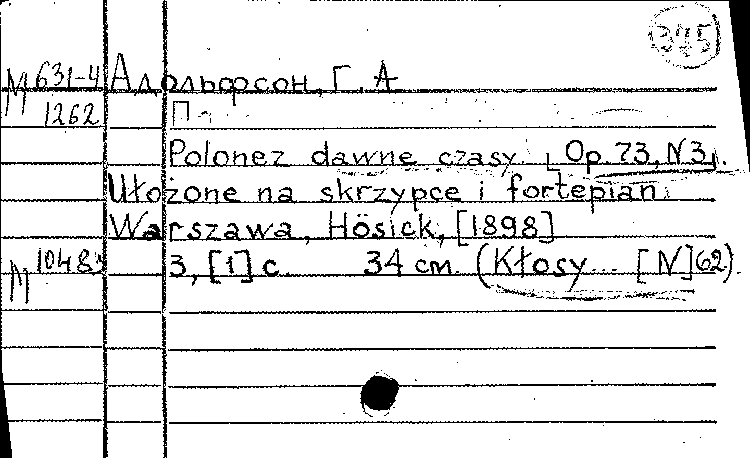 345
М 631-4 Адольфсон, Г. А
1262 П.
Polonez dawne czasy. Op. 73, N 3.
Ułożone na skrzypce i fortepian.
Warszawa, Hösick, [1898]
М 10483 3, [1] с. 34 cm. (Kłosy... [N] 62).